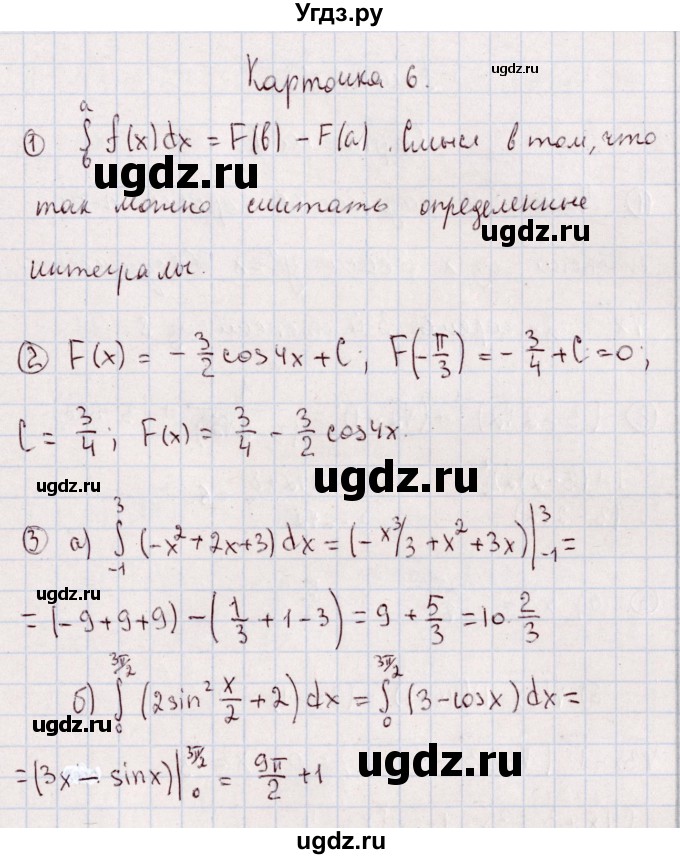 Угдз.ру
Карточка 6.
ugdz.ru
① ∫ₐᵇ f(x)dx = F(b) – F(a). Смысл в том, что
ugdz.ru
так можно считать определенные
ugdz.ru
интегралы.
② F(x) = –3/2 cos4x + C; F(–π/3) = –3/4 + C = 0;
C = 3/4; F(x) = 3/4 – 3/2 cos4x.
ugdz.ru
ugdz.ru
③ а) ∫₋₁³ (–x² + 2x + 3) dx = (–x³/3 + x² + 3x)|₋₁³ =
ugdz.ru
= (–9+9+9) – (1/3 + 1 – 3) = 9 + 5/3 = 10 2/3
ugdz.ru
б) ∫₀^(3π/2) (2sin² x/2 + 2) dx = ∫₀^(3π/2) (3 – cosx) dx =
ugdz.ru
= (3x – sinx)|₀^(3π/2) = 9π/2 + 1
ugdz.ru
ugdz.ru